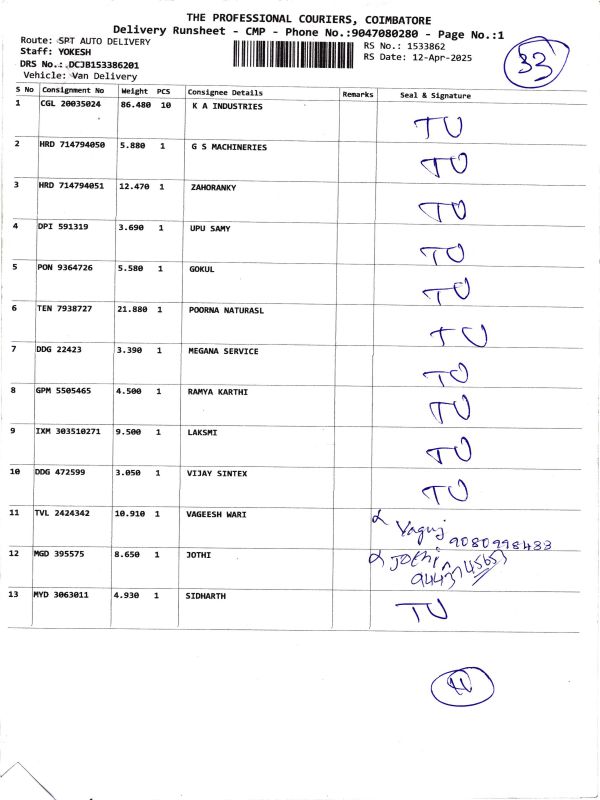 THE PROFESSIONAL COURIERS, COIMBATORE
Delivery Runsheet - CMP - Phone No.:9047080280 - Page No.:1
Route: SPT AUTO DELIVERY
RS No.: 1533862
33
Staff: YOKESH
RS Date: 12-Apr-2025
DRS No.: DCJB153386201
Vehicle: Van Delivery
S No Consignment No Weight PCS Consignee Details Remarks Seal & Signature
1 CGL 20035024 86.480 10 K A INDUSTRIES TU
2 HRD 714794050 5.880 1 G S MACHINERIES TU
3 HRD 714794051 12.470 1 ZAHORANKY TU
4 DPI 591319 3.690 1 UPU SAMY TU
5 PON 9364726 5.580 1 GOKUL TU
6 TEN 7938727 21.880 1 POORNA NATURASL TU
7 DDG 22423 3.390 1 MEGANA SERVICE TU
8 GPM 5505465 4.500 1 RAMYA KARTHI TU
9 IXM 303510271 9.500 1 LAKSMI TU
10 DDG 472599 3.050 1 VIJAY SINTEX TU
11 TVL 2424342 10.910 1 VAGEESH WARI 9080998433
12 MGD 395575 8.650 1 JOTHI Jothi
13 MYD 3063011 4.930 1 SIDHARTH TU
11